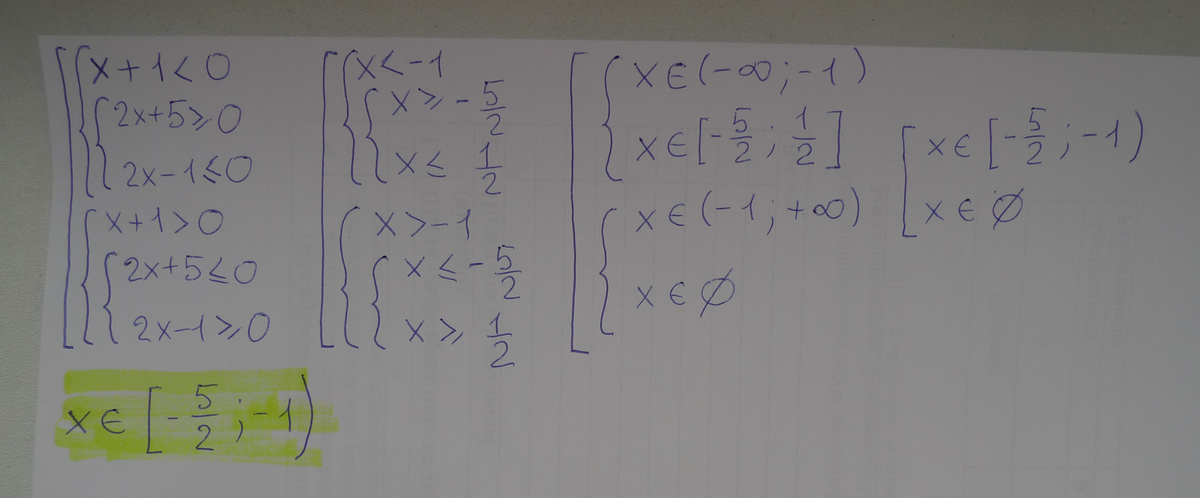 x+1<0
2x+5⩾0
2x-1⩽0
x+1>0
2x+5⩽0
2x-1⩾0
x<-1
x⩾-5/2
x⩽ 1/2
x>-1
x⩽-5/2
x⩾ 1/2
x∈(-∞;-1)
x∈[-5/2; 1/2]
x∈(-1;+∞)
x∈∅
x∈[-5/2;-1)
x∈∅
x∈[-5/2;-1)